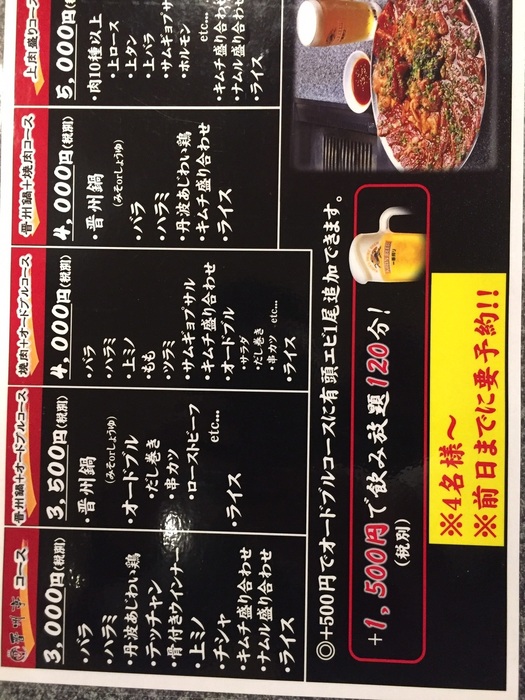 晋州亭 コース
3,000円(税別)
・バラ
・ハラミ
・丹波あじわい鶏
・テッチャン
・骨付きウインナー
・上ミノ
・チシャ
・キムチ盛り合わせ
・ナムル盛り合わせ
・ライス
晋州鍋+オードブルコース
3,500円(税別)
・晋州鍋
(みそorしょうゆ)
・オードブル
・だし巻き
・串カツ
・ローストビーフ
etc…
・ライス
焼肉+オードブルコース
4,000円(税別)
・バラ
・ハラミ
・上ミノ
・もも
・ツラミ
・サムギョプサル
・キムチ盛り合わせ
・オードブル
・サラダ
・だし巻き
・串カツ etc…
・ライス
晋州鍋+焼肉コース
4,000円(税別)
・晋州鍋
(みそorしょうゆ)
・バラ
・ハラミ
・丹波あじわい鶏
・キムチ盛り合わせ
・ライス
上肉盛りコース
5,000円(税別)
・肉10種以上
・上ロース
・上タン
・上バラ
・サムギョプサ
・ホルモン
etc…
・キムチ盛り合わせ
・ナムル盛り合わせ
・ライス
◎+500円でオードブルコースに有頭エビ1尾追加できます。
+1,500円で飲み放題120分!
(税別)
※4名様～
※前日までに要予約!!